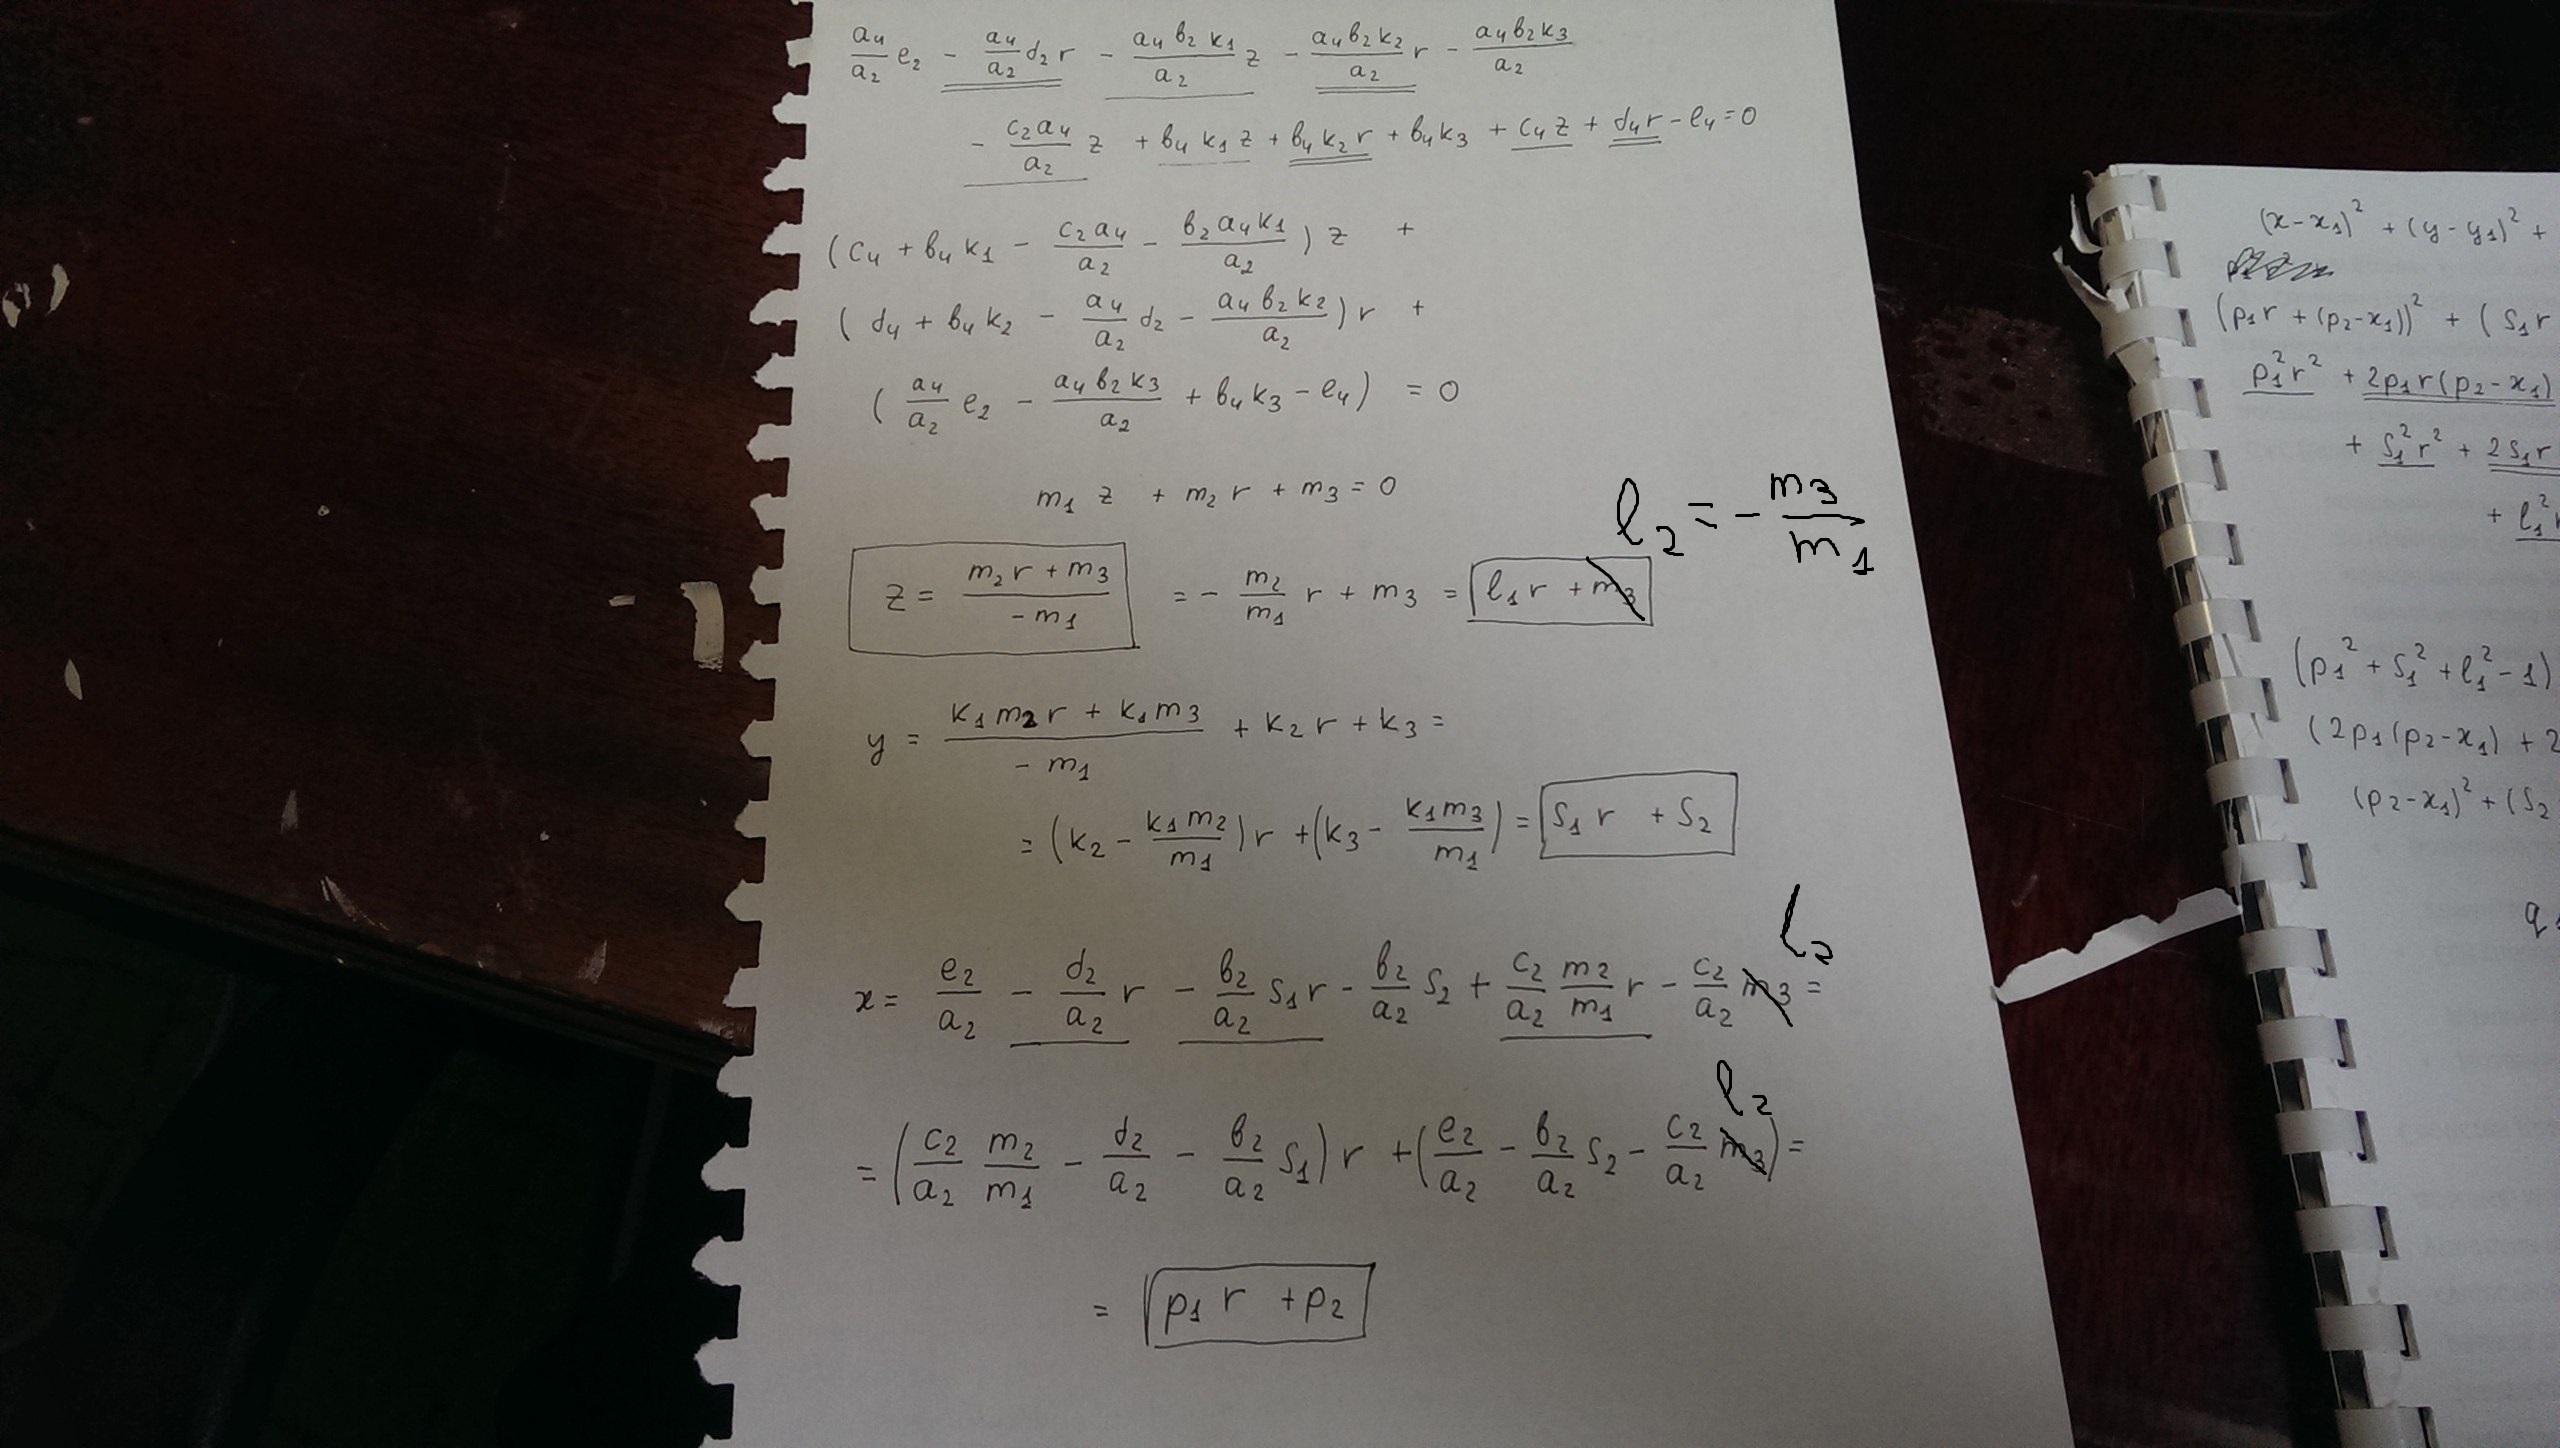 a₄/a₂ e₂ - a₄/a₂ d₂ r - a₄ b₂ k₁/a₂ z - a₄ b₂ k₂/a₂ r - a₄ b₂ k₃/a₂
- c₂ a₄/a₂ z + b₄ k₁ z + b₄ k₂ r + b₄ k₃ + c₄ z + d₄ r - e₄ = 0
(c₄ + b₄ k₁ - c₂ a₄/a₂ - b₂ a₄ k₁/a₂) z +
(d₄ + b₄ k₂ - a₄/a₂ d₂ - a₄ b₂ k₂/a₂) r +
(a₄/a₂ e₂ - a₄ b₂ k₃/a₂ + b₄ k₃ - e₄) = 0
m₁ z + m₂ r + m₃ = 0
l₂ = - m₃/m₁
z = (m₂ r + m₃)/(-m₁) = - m₂/m₁ r + m₃ = l₁ r + m₃
y = (k₁ m₂ r + k₁ m₃)/(-m₁) + k₂ r + k₃ =
= (k₂ - k₁ m₂/m₁) r + (k₃ - k₁ m₃/m₁) = s₁ r + s₂
l₂
x = e₂/a₂ - d₂/a₂ r - b₂/a₂ s₁ r - b₂/a₂ s₂ + c₂/a₂ m₂/m₁ r - c₂/a₂ m₃ =
l₂
= (c₂/a₂ m₂/m₁ - d₂/a₂ - b₂/a₂ s₁) r + (e₂/a₂ - b₂/a₂ s₂ - c₂/a₂ m₃) =
= p₁ r + p₂
(x - x₁)² + (y - y₁)² +
(p₁ r + (p₂ - x₁))² + (s₁ r
p₁² r² + 2p₁ r (p₂ - x₁)
+ s₁² r² + 2 s₁ r
+ l₁²
(p₁² + s₁² + l₁² - 1)
(2p₁ (p₂ - x₁) + 2
(p₂ - x₁)² + (s₂